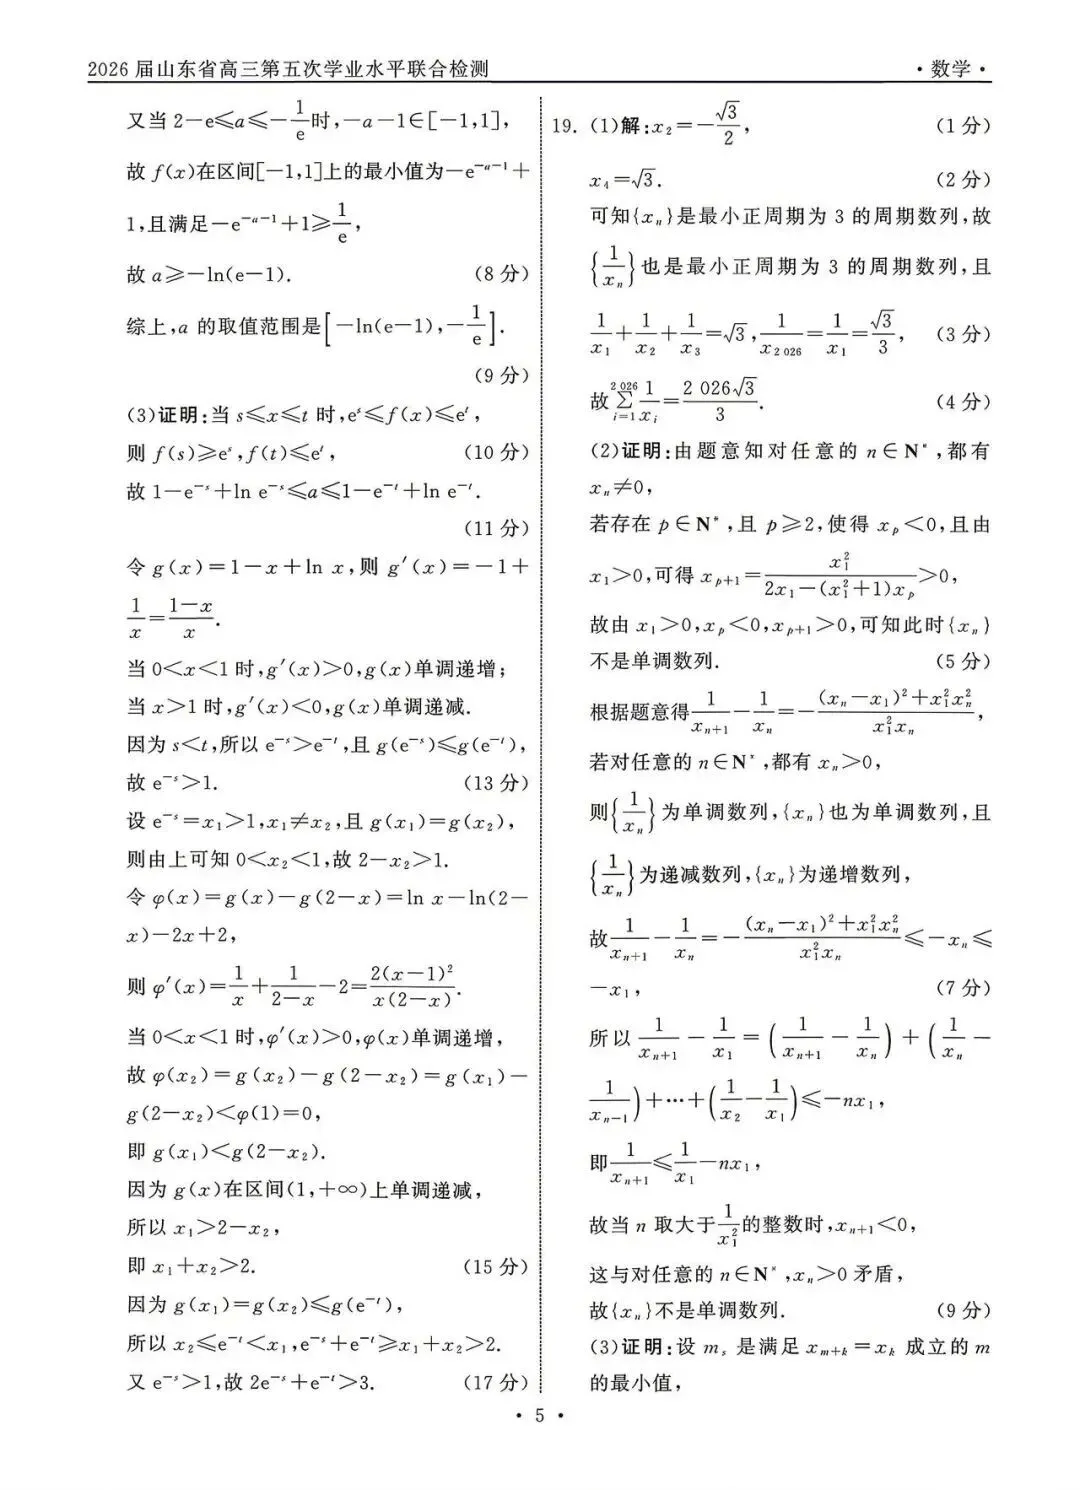 2026 届山东省高三第五次学业水平联合检测
· 数学 ·
又当 2－e≤a≤－1/e时,－a－1∈[－1,1],
故 f(x)在区间[－1,1]上的最小值为－e^{－a－1}＋
1,且满足－e^{－a－1}＋1≥1/e,
故 a≥－ln(e－1). (8 分)
综上,a 的取值范围是[－ln(e－1),－1/e].
(9 分)
(3)证明:当 s≤x≤t 时,e^s≤f(x)≤e^t,
则 f(s)≥e^s,f(t)≤e^t, (10 分)
故 1－e^{－s}＋ln e^{－s}≤a≤1－e^{－t}＋ln e^{－t}.
(11 分)
令 g(x)＝1－x＋ln x,则 g′(x)＝－1＋
1/x＝(1－x)/x.
当 0＜x＜1 时,g′(x)＞0,g(x)单调递增;
当 x＞1 时,g′(x)＜0,g(x)单调递减.
因为 s＜t,所以 e^{－s}＞e^{－t},且 g(e^{－s})≤g(e^{－t}),
故 e^{－s}＞1. (13 分)
设 e^{－s}＝x₁＞1,x₁≠x₂,且 g(x₁)＝g(x₂),
则由上可知 0＜x₂＜1,故 2－x₂＞1.
令 φ(x)＝g(x)－g(2－x)＝ln x－ln(2－
x)－2x＋2,
则 φ′(x)＝1/x＋1/(2－x)－2＝2(x－1)²/(x(2－x)).
当 0＜x＜1 时,φ′(x)＞0,φ(x)单调递增,
故 φ(x₂)＝g(x₂)－g(2－x₂)＝g(x₁)－
g(2－x₂)＜φ(1)＝0,
即 g(x₁)＜g(2－x₂).
因为 g(x)在区间(1,＋∞)上单调递减,
所以 x₁＞2－x₂,
即 x₁＋x₂＞2. (15 分)
因为 g(x₁)＝g(x₂)≤g(e^{－t}),
所以 x₂≤e^{－t}＜x₁,e^{－s}＋e^{－t}≥x₁＋x₂＞2.
又 e^{－s}＞1,故 2e^{－s}＋e^{－t}＞3. (17 分)
19. (1)解:x₂＝－√3/2, (1 分)
x₄＝√3. (2 分)
可知{xₙ}是最小正周期为 3 的周期数列,故
{1/xₙ}也是最小正周期为 3 的周期数列,且
1/x₁＋1/x₂＋1/x₃＝√3,1/x_{2 026}＝1/x₁＝√3/3, (3 分)
故∑_{i＝1}^{2 026} 1/x_i＝2 026√3/3. (4 分)
(2)证明:由题意知对任意的 n∈N*,都有
xₙ≠0,
若存在 p∈N*,且 p≥2,使得 x_p＜0,且由
x₁＞0,可得 x_{p+1}＝x₁²/(2x₁－(x₁²＋1)x_p)＞0,
故由 x₁＞0,x_p＜0,x_{p+1}＞0,可知此时{xₙ}
不是单调数列. (5 分)
根据题意得1/x_{n+1}－1/xₙ＝－((xₙ－x₁)²＋x₁²xₙ²)/(x₁²xₙ),
若对任意的 n∈N*,都有 xₙ＞0,
则{1/xₙ}为单调数列,{xₙ}也为单调数列,且
{1/xₙ}为递减数列,{xₙ}为递增数列,
故1/x_{n+1}－1/xₙ＝－((xₙ－x₁)²＋x₁²xₙ²)/(x₁²xₙ)≤－xₙ≤
－x₁, (7 分)
所以1/x_{n+1}－1/x₁＝(1/x_{n+1}－1/xₙ)＋(1/xₙ－
1/x_{n－1})＋⋯＋(1/x₂－1/x₁)≤－nx₁,
即1/x_{n+1}≤1/x₁－nx₁,
故当 n 取大于1/x₁²的整数时,x_{n+1}＜0,
这与对任意的 n∈N*,xₙ＞0 矛盾,
故{xₙ}不是单调数列. (9 分)
(3)证明:设 m_s 是满足 x_{m+k}＝x_k 成立的 m
的最小值,
· 5 ·